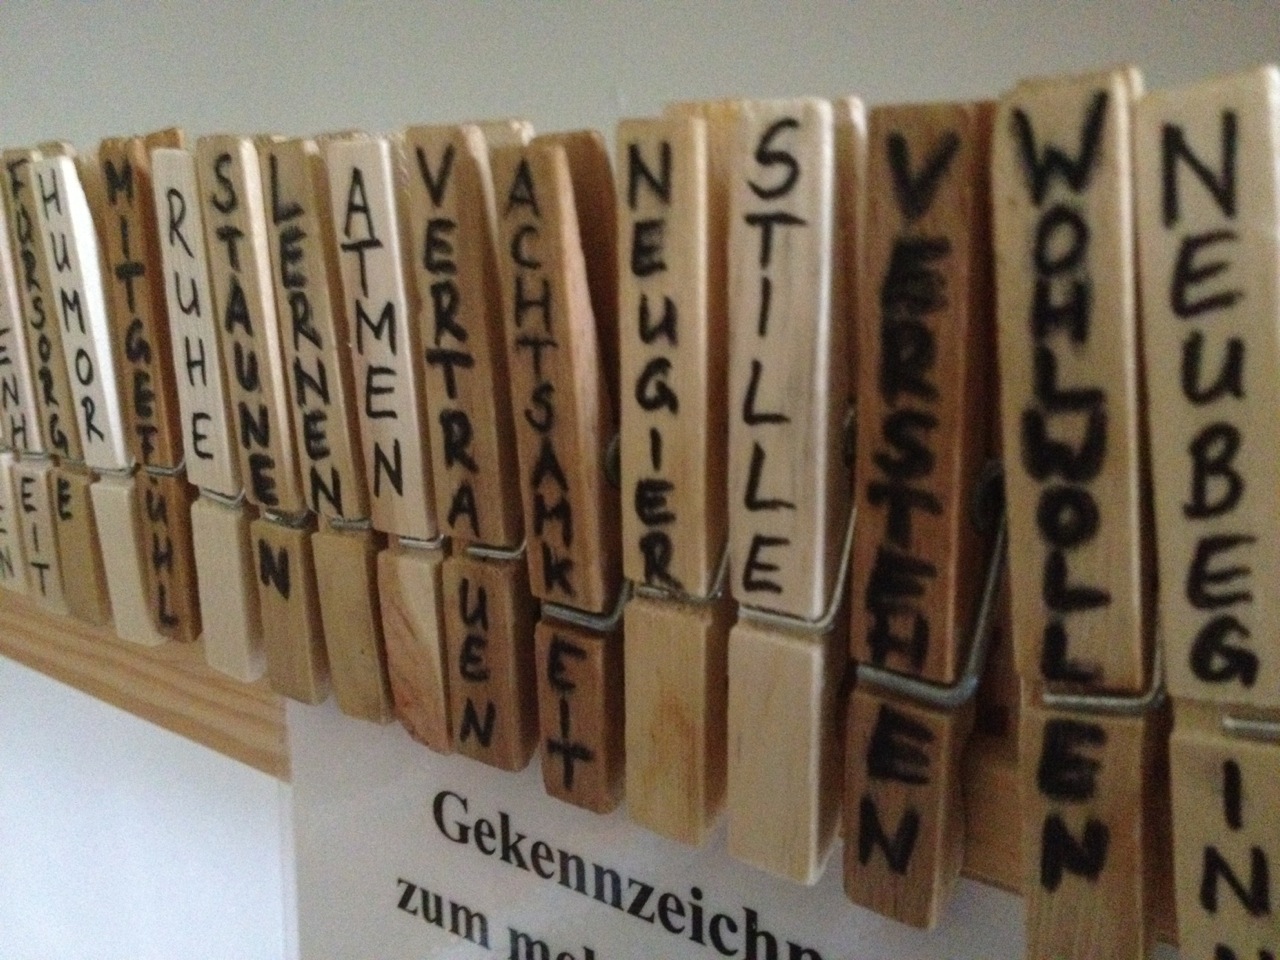 FÜRSORGE
HUMOR
MITGEFÜHL
RUHE
STAUNEN
LERNEN
ATMEN
VERTRAUEN
ACHTSAMKEIT
NEUGIER
STILLE
VERSTEHEN
WOHLWOLLEN
NEUBEGINN
Gekennzeichn
zum meh